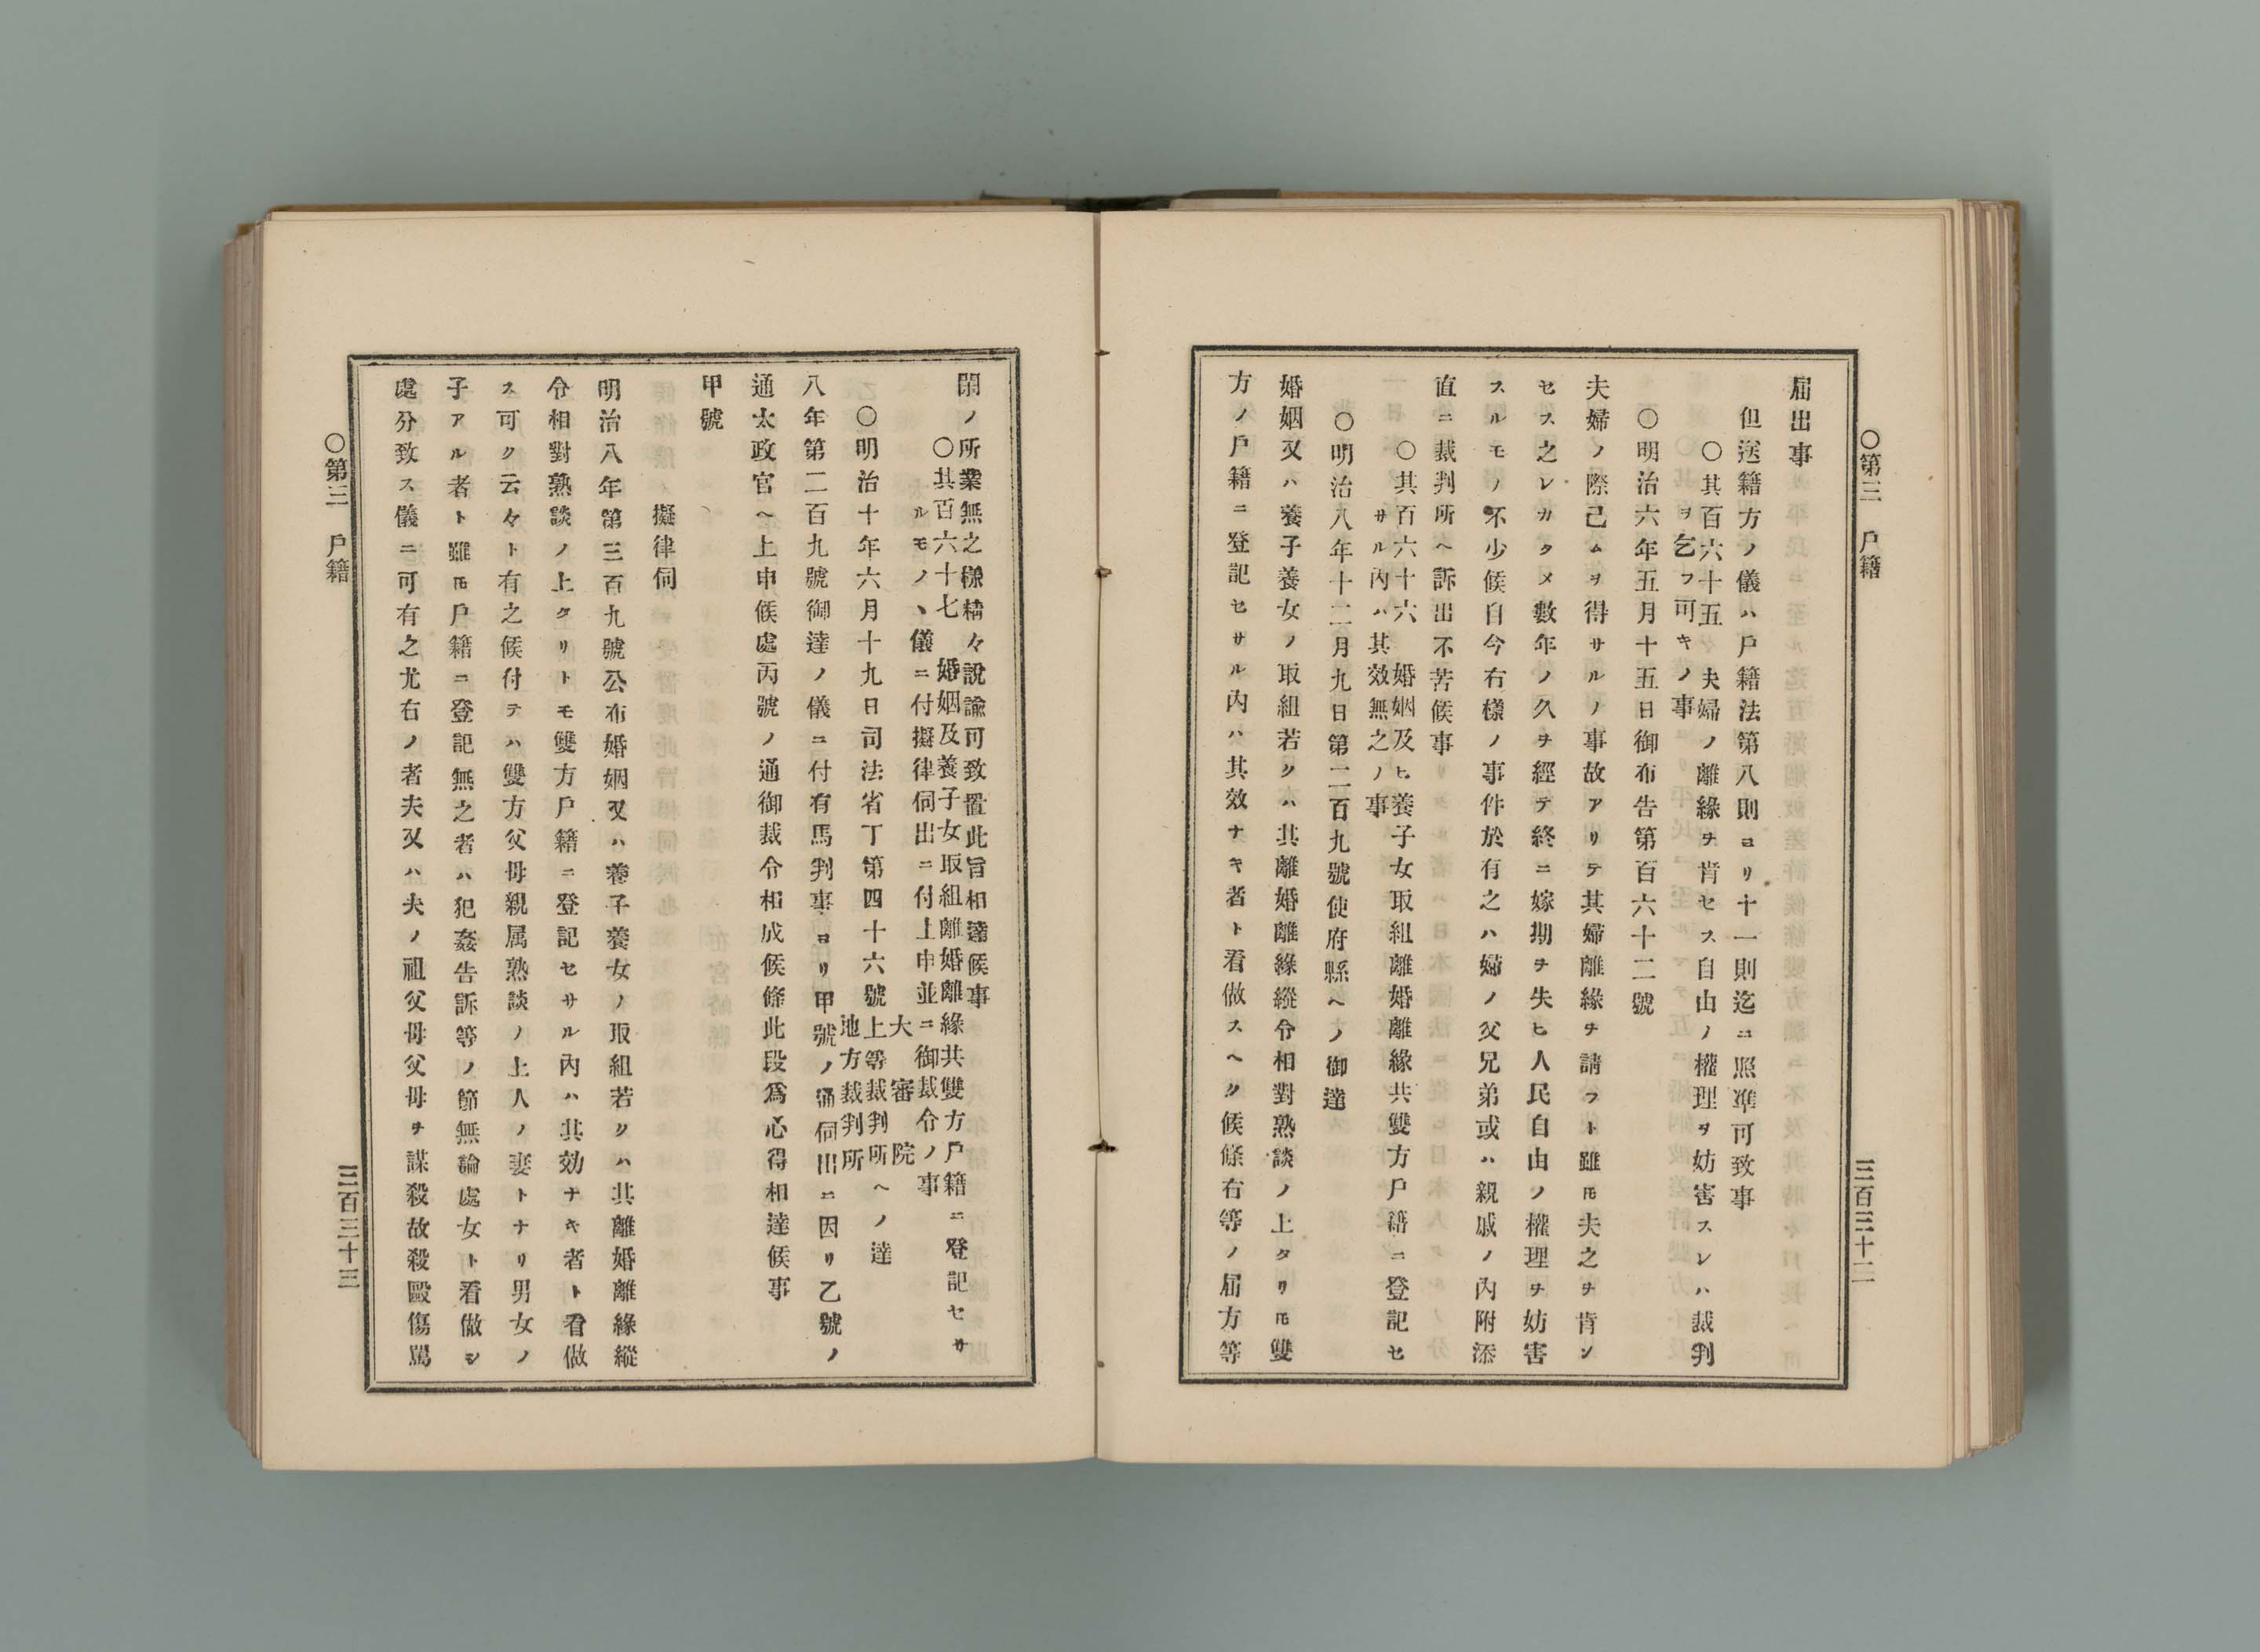 ○第三　戸籍
三百三十二
届出事
但送籍方ノ儀ハ戸籍法第八則ヨリ十一則迄ニ照凖可致事
○其百六十五　夫婦ノ離緣ヲ肯セス自由ノ權理ヲ妨害スレハ裁判
ヲ乞フ可キノ事
○明治六年五月十五日御布告第百六十二號
夫婦ノ際已ムヲ得サルノ事故アリテ其婦離緣ヲ請フト雖𪜈夫之ヲ肯ン
セス之レカタメ數年ノ久ヲ經テ終ニ嫁期ヲ失ヒ人民自由ノ權理ヲ妨害
スルモノ不少候自今右樣ノ事件於有之ハ婦ノ父兄弟或ハ親戚ノ內附添
直ニ裁判所ヘ訴出不苦候事
○其百六十六　婚姻及ヒ養子女取組離婚離緣共雙方戸籍ニ登記セ
サル內ハ其效無之ノ事
○明治八年十二月九日第二百九號使府縣ヘノ御達
婚姻又ハ養子養女ノ取組若クハ其離婚離緣縱令相對熟談ノ上タリ𪜈雙
方ノ戸籍ニ登記セサル內ハ其效ナキ者ト看做スヘク候條右等ノ届方等
閑ノ所業無之樣精々說諭可致置此旨相達候事
○其百六十七　婚姻及養子女取組離婚離緣共雙方戸籍ニ登記セサ
ルモノヽ儀ニ付擬律伺出ニ付上申並ニ御裁令ノ事
大審院
○明治十年六月十九日司法省丁第四十六號上等裁判所ヘノ達
地方裁判所
八年第二百九號御達ノ儀ニ付有馬判事ヨリ甲號ノ通伺出ニ因リ乙號ノ
通太政官ヘ上申候處丙號ノ通御裁令相成候條此段爲心得相達候事
甲號
擬律伺
明治八年第三百九號公布婚姻又ハ養子養女ノ取組若クハ其離婚離緣縱
令相對熟談ノ上タリトモ雙方戸籍ニ登記セサル內ハ其効ナキ者ト看做
ス可ク云々ト有之候付テハ雙方父母親属熟談ノ上人ノ妻トナリ男女ノ
子アル者ト雖𪜈戸籍ニ登記無之者ハ犯姦告訴等ノ節無論處女ト看做シ
處分致ス儀ニ可有之尤右ノ者夫又ハ夫ノ祖父母父母ヲ謀殺故殺毆傷罵
○第三　戸籍
三百三十三